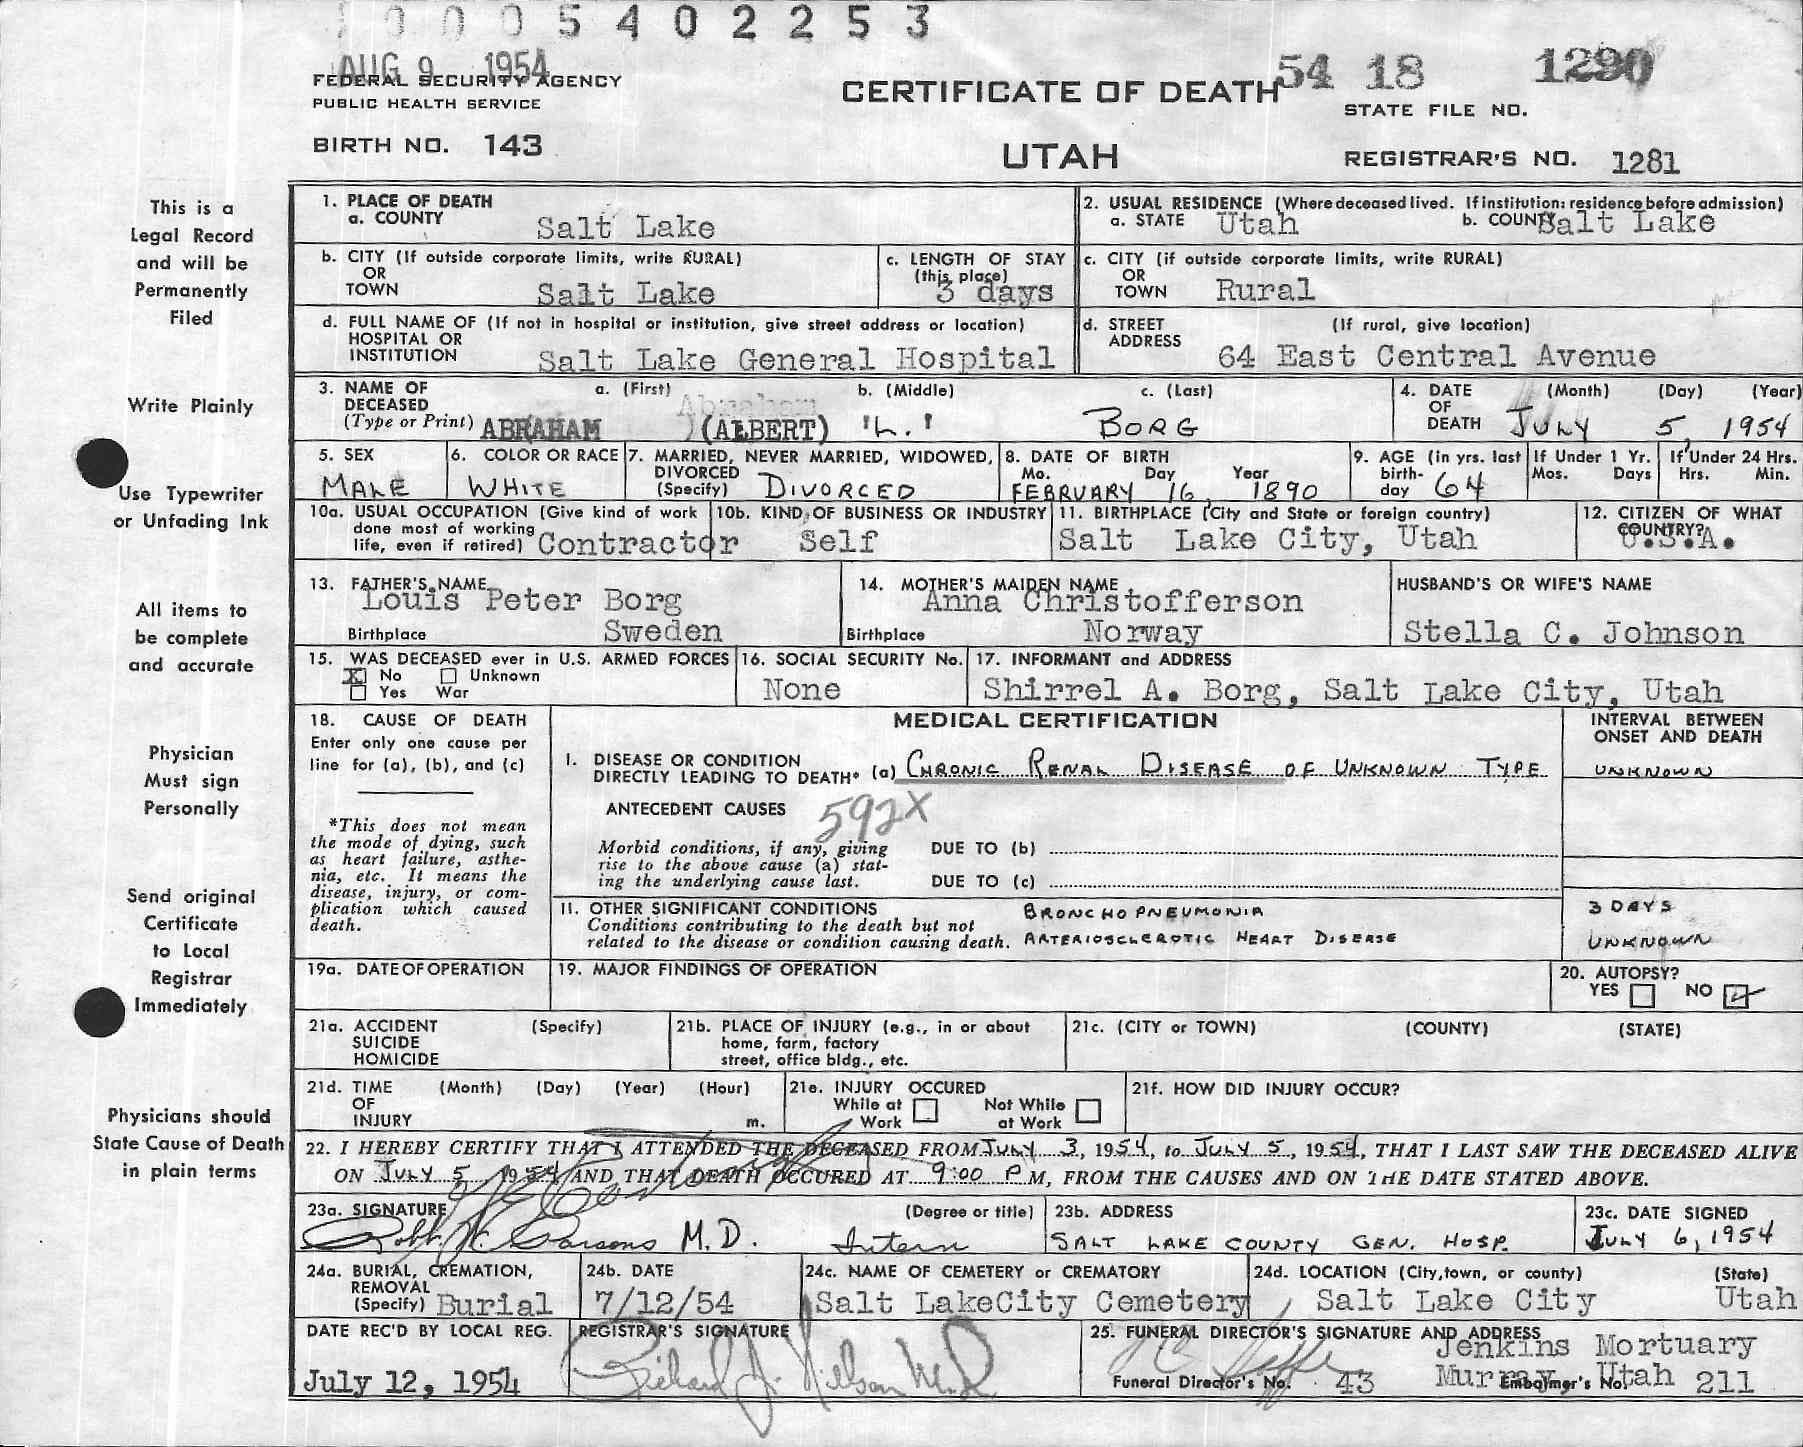 0 0 0 5 4 0 2 2 5 3
AUG 9 1954
FEDERAL SECURITY AGENCY
PUBLIC HEALTH SERVICE
BIRTH NO. 143
CERTIFICATE OF DEATH
UTAH
54 18 1290
STATE FILE NO.
REGISTRAR'S NO. 1281
This is a
Legal Record
and will be
Permanently
Filed
Write Plainly
Use Typewriter
or Unfading Ink
All items to
be complete
and accurate
Physician
Must sign
Personally
Send original
Certificate
to Local
Registrar
Immediately
Physicians should
State Cause of Death
in plain terms
1. PLACE OF DEATH
a. COUNTY Salt Lake
2. USUAL RESIDENCE (Where deceased lived. If institution: residence before admission)
a. STATE Utah b. COUNTY Salt Lake
b. CITY (If outside corporate limits, write RURAL)
OR
TOWN Salt Lake
c. LENGTH OF STAY
(this place)
3 days
c. CITY (if outside corporate limits, write RURAL)
OR
TOWN Rural
d. FULL NAME OF (If not in hospital or institution, give street address or location)
HOSPITAL OR
INSTITUTION Salt Lake General Hospital
d. STREET (If rural, give location)
ADDRESS 64 East Central Avenue
3. NAME OF a. (First) b. (Middle) c. (Last)
DECEASED Abraham
(Type or Print) ABRAHAM (ALBERT) "L." BORG
4. DATE (Month) (Day) (Year)
OF
DEATH JULY 5, 1954
5. SEX
MALE
6. COLOR OR RACE
WHITE
7. MARRIED, NEVER MARRIED, WIDOWED,
DIVORCED
(Specify) DIVORCED
8. DATE OF BIRTH
Mo. Day Year
FEBRUARY 16, 1890
9. AGE (in yrs. last
birth-
day 64
If Under 1 Yr.
Mos. Days
If Under 24 Hrs.
Hrs. Min.
10a. USUAL OCCUPATION (Give kind of work
done most of working
life, even if retired) Contractor
10b. KIND OF BUSINESS OR INDUSTRY
Self
11. BIRTHPLACE (City and State or foreign country)
Salt Lake City, Utah
12. CITIZEN OF WHAT
COUNTRY?
U.S.A.
13. FATHER'S NAME
Louis Peter Borg
Birthplace Sweden
14. MOTHER'S MAIDEN NAME
Anna Christofferson
Birthplace Norway
HUSBAND'S OR WIFE'S NAME
Stella C. Johnson
15. WAS DECEASED ever in U.S. ARMED FORCES
X No Unknown
Yes War
16. SOCIAL SECURITY No.
None
17. INFORMANT and ADDRESS
Shirrel A. Borg, Salt Lake City, Utah
18. CAUSE OF DEATH
Enter only one cause per
line for (a), (b), and (c)
*This does not mean
the mode of dying, such
as heart failure, asthe-
nia, etc. It means the
disease, injury, or com-
plication which caused
death.
MEDICAL CERTIFICATION
INTERVAL BETWEEN
ONSET AND DEATH
I. DISEASE OR CONDITION
DIRECTLY LEADING TO DEATH* (a) CHRONIC RENAL DISEASE OF UNKNOWN TYPE
UNKNOWN
ANTECEDENT CAUSES 592X
Morbid conditions, if any, giving
rise to the above cause (a) stat-
ing the underlying cause last.
DUE TO (b)
DUE TO (c)
11. OTHER SIGNIFICANT CONDITIONS
Conditions contributing to the death but not
related to the disease or condition causing death.
BRONCHOPNEUMONIA 3 DAYS
ARTERIOSCLEROTIC HEART DISEASE UNKNOWN
19a. DATE OF OPERATION
19. MAJOR FINDINGS OF OPERATION
20. AUTOPSY?
YES NO
21a. ACCIDENT (Specify)
SUICIDE
HOMICIDE
21b. PLACE OF INJURY (e.g., in or about
home, farm, factory
street, office bldg., etc.
21c. (CITY or TOWN) (COUNTY) (STATE)
21d. TIME (Month) (Day) (Year) (Hour)
OF
INJURY m.
21e. INJURY OCCURED
While at Not While
Work at Work
21f. HOW DID INJURY OCCUR?
22. I HEREBY CERTIFY THAT I ATTENDED THE DECEASED FROM JULY 3, 1954, to JULY 5, 1954, THAT I LAST SAW THE DECEASED ALIVE
ON JULY 5, 1954 AND THAT DEATH OCCURED AT 9:00 P M, FROM THE CAUSES AND ON THE DATE STATED ABOVE.
23a. SIGNATURE (Degree or title)
Robt. W. Parsons M.D. Intern
23b. ADDRESS
SALT LAKE COUNTY GEN. HOSP.
23c. DATE SIGNED
JULY 6, 1954
24a. BURIAL, CREMATION,
REMOVAL
(Specify) Burial
24b. DATE
7/12/54
24c. NAME OF CEMETERY or CREMATORY
Salt LakeCity Cemetery
24d. LOCATION (City, town, or county) (State)
Salt Lake City Utah
DATE REC'D BY LOCAL REG.
July 12, 1954
REGISTRAR'S SIGNATURE
Richard J. Nielson M.D.
25. FUNERAL DIRECTOR'S SIGNATURE AND ADDRESS
Jenkins Mortuary
Murray, Utah
Funeral Director's No. 43 Embalmer's No. 211